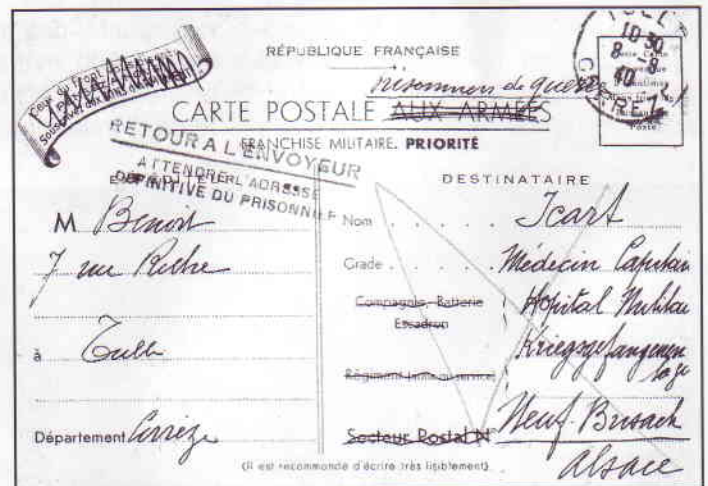 RÉPUBLIQUE FRANÇAISE
prisonniers de guerre
CARTE POSTALE AUX ARMÉES
FRANCHISE MILITAIRE. PRIORITÉ
TULLE
10 30
8 -8
40
CORREZE
RETOUR A L'ENVOYEUR
ATTENDRE L'ADRESSE
DEFINITIVE DU PRISONNIER
EXPÉDITEUR
M Benoit
7 rue
à Tulle
Département Corrèze
DESTINATAIRE
Nom Icart
Grade Médecin Capitain
Compagnie, Batterie
Escadron
Hôpital Militai
Régiment
Kriegsgefangenen
lage
Secteur Postal N°
Neuf-Brisach
Alsace
(Il est recommandé d'écrire très lisiblement)